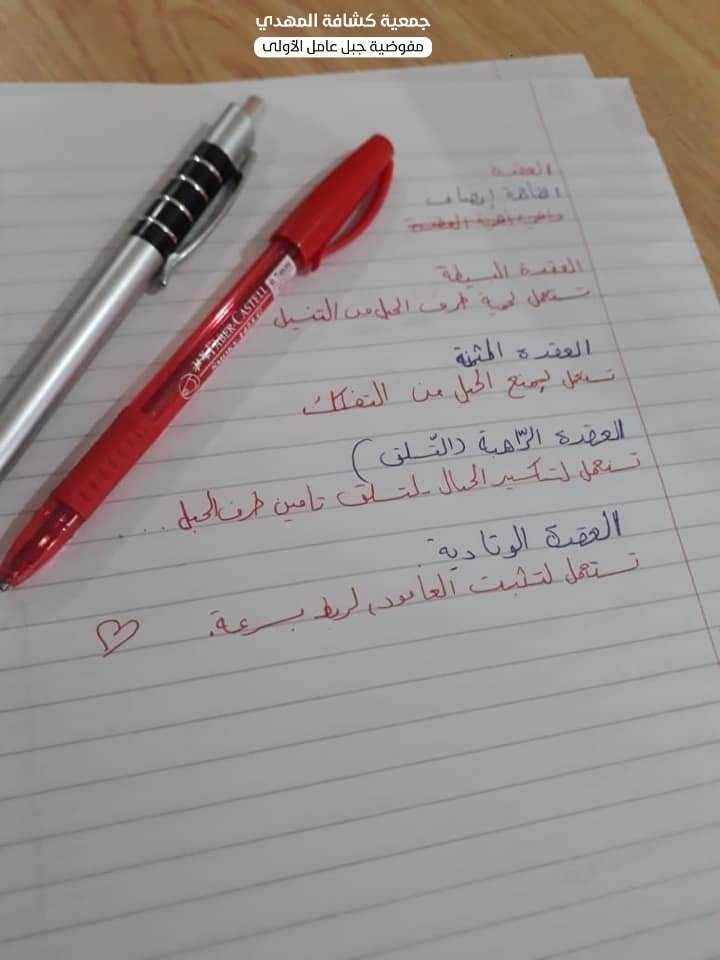 جمعية كشافة المهدي
مفوضية جبل عامل الأولى
العقدة
العقدة البسيطة
تستعمل لحمية طرف الحبل من التنسيل
العقدة المثمنة
تستعمل ليمنع الحبل من التفكك
العقدة الرّاهبة (التّسلق)
تستعمل لتكسير الحبال لتسلق تامين طرف الحبل ....
العقدة الوتادية.
تستعمل لتثبت العامود، لربط بسرعة.
FABER-CASTELL